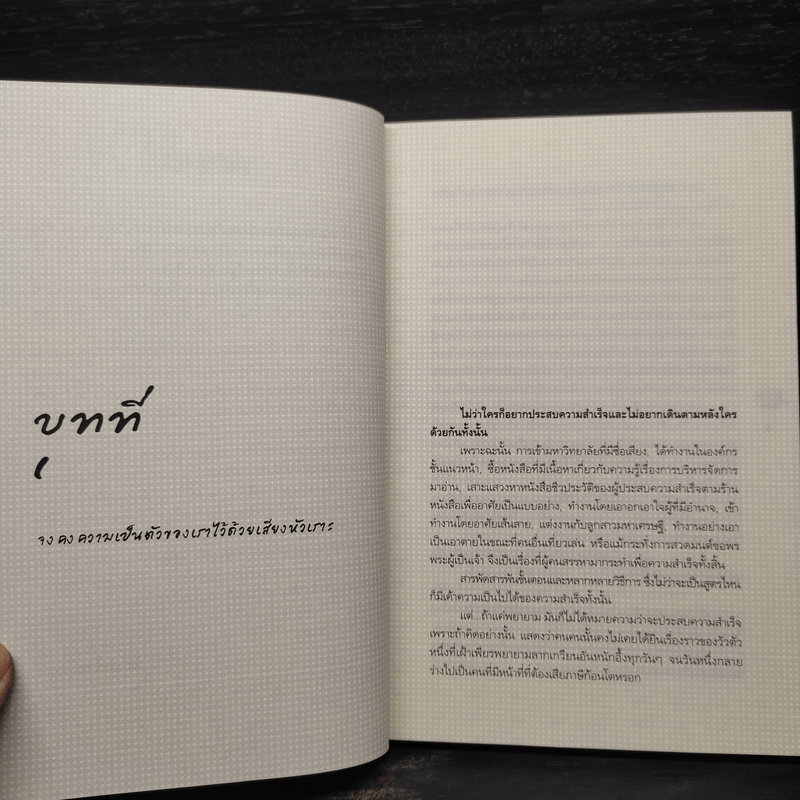 บทที่
(
จงคงความเป็นตัวของเราไว้ด้วยเสียงหัวเราะ
ไม่ว่าใครก็อยากประสบความสำเร็จและไม่อยากเดินตามหลังใคร
ด้วยกันทั้งนั้น
เพราะฉะนั้น การเข้ามหาวิทยาลัยที่มีชื่อเสียง, ได้ทำงานในองค์กร
ชั้นแนวหน้า, ซื้อหนังสือที่มีเนื้อหาเกี่ยวกับความรู้เรื่องการบริหารจัดการ
มาอ่าน, เสาะแสวงหาหนังสือชีวประวัติของผู้ประสบความสำเร็จตามร้าน
หนังสือเพื่ออาศัยเป็นแบบอย่าง, ทำงานโดยเอาอกเอาใจผู้ที่มีอำนาจ, เข้า
ทำงานโดยอาศัยเส้นสาย, แต่งงานกับลูกสาวมหาเศรษฐี, ทำงานอย่างเอา
เป็นเอาตายในขณะที่คนอื่นเที่ยวเล่น หรือแม้กระทั่งการสวดมนต์ขอพร
พระผู้เป็นเจ้า จึงเป็นเรื่องที่ผู้คนสรรหามากระทำเพื่อความสำเร็จทั้งสิ้น
สารพัดสารพันขั้นตอนและหลากหลายวิธีการ ซึ่งไม่ว่าจะเป็นสูตรไหน
ก็มีเค้าความเป็นไปได้ของความสำเร็จทั้งนั้น
แต่...ถ้าแค่พยายาม มันก็ไม่ได้หมายความว่าจะประสบความสำเร็จ
เพราะถ้าคิดอย่างนั้น แสดงว่าคนคนนั้นคงไม่เคยได้ยินเรื่องราวของวัวตัว
หนึ่งที่เฝ้าเพียรพยายามลากเกวียนอันหนักอึ้งทุกวันๆ จนวันหนึ่งกลาย
ร่างไปเป็นคนที่มีหน้าที่ที่ต้องเสียภาษีก้อนโตหรอก